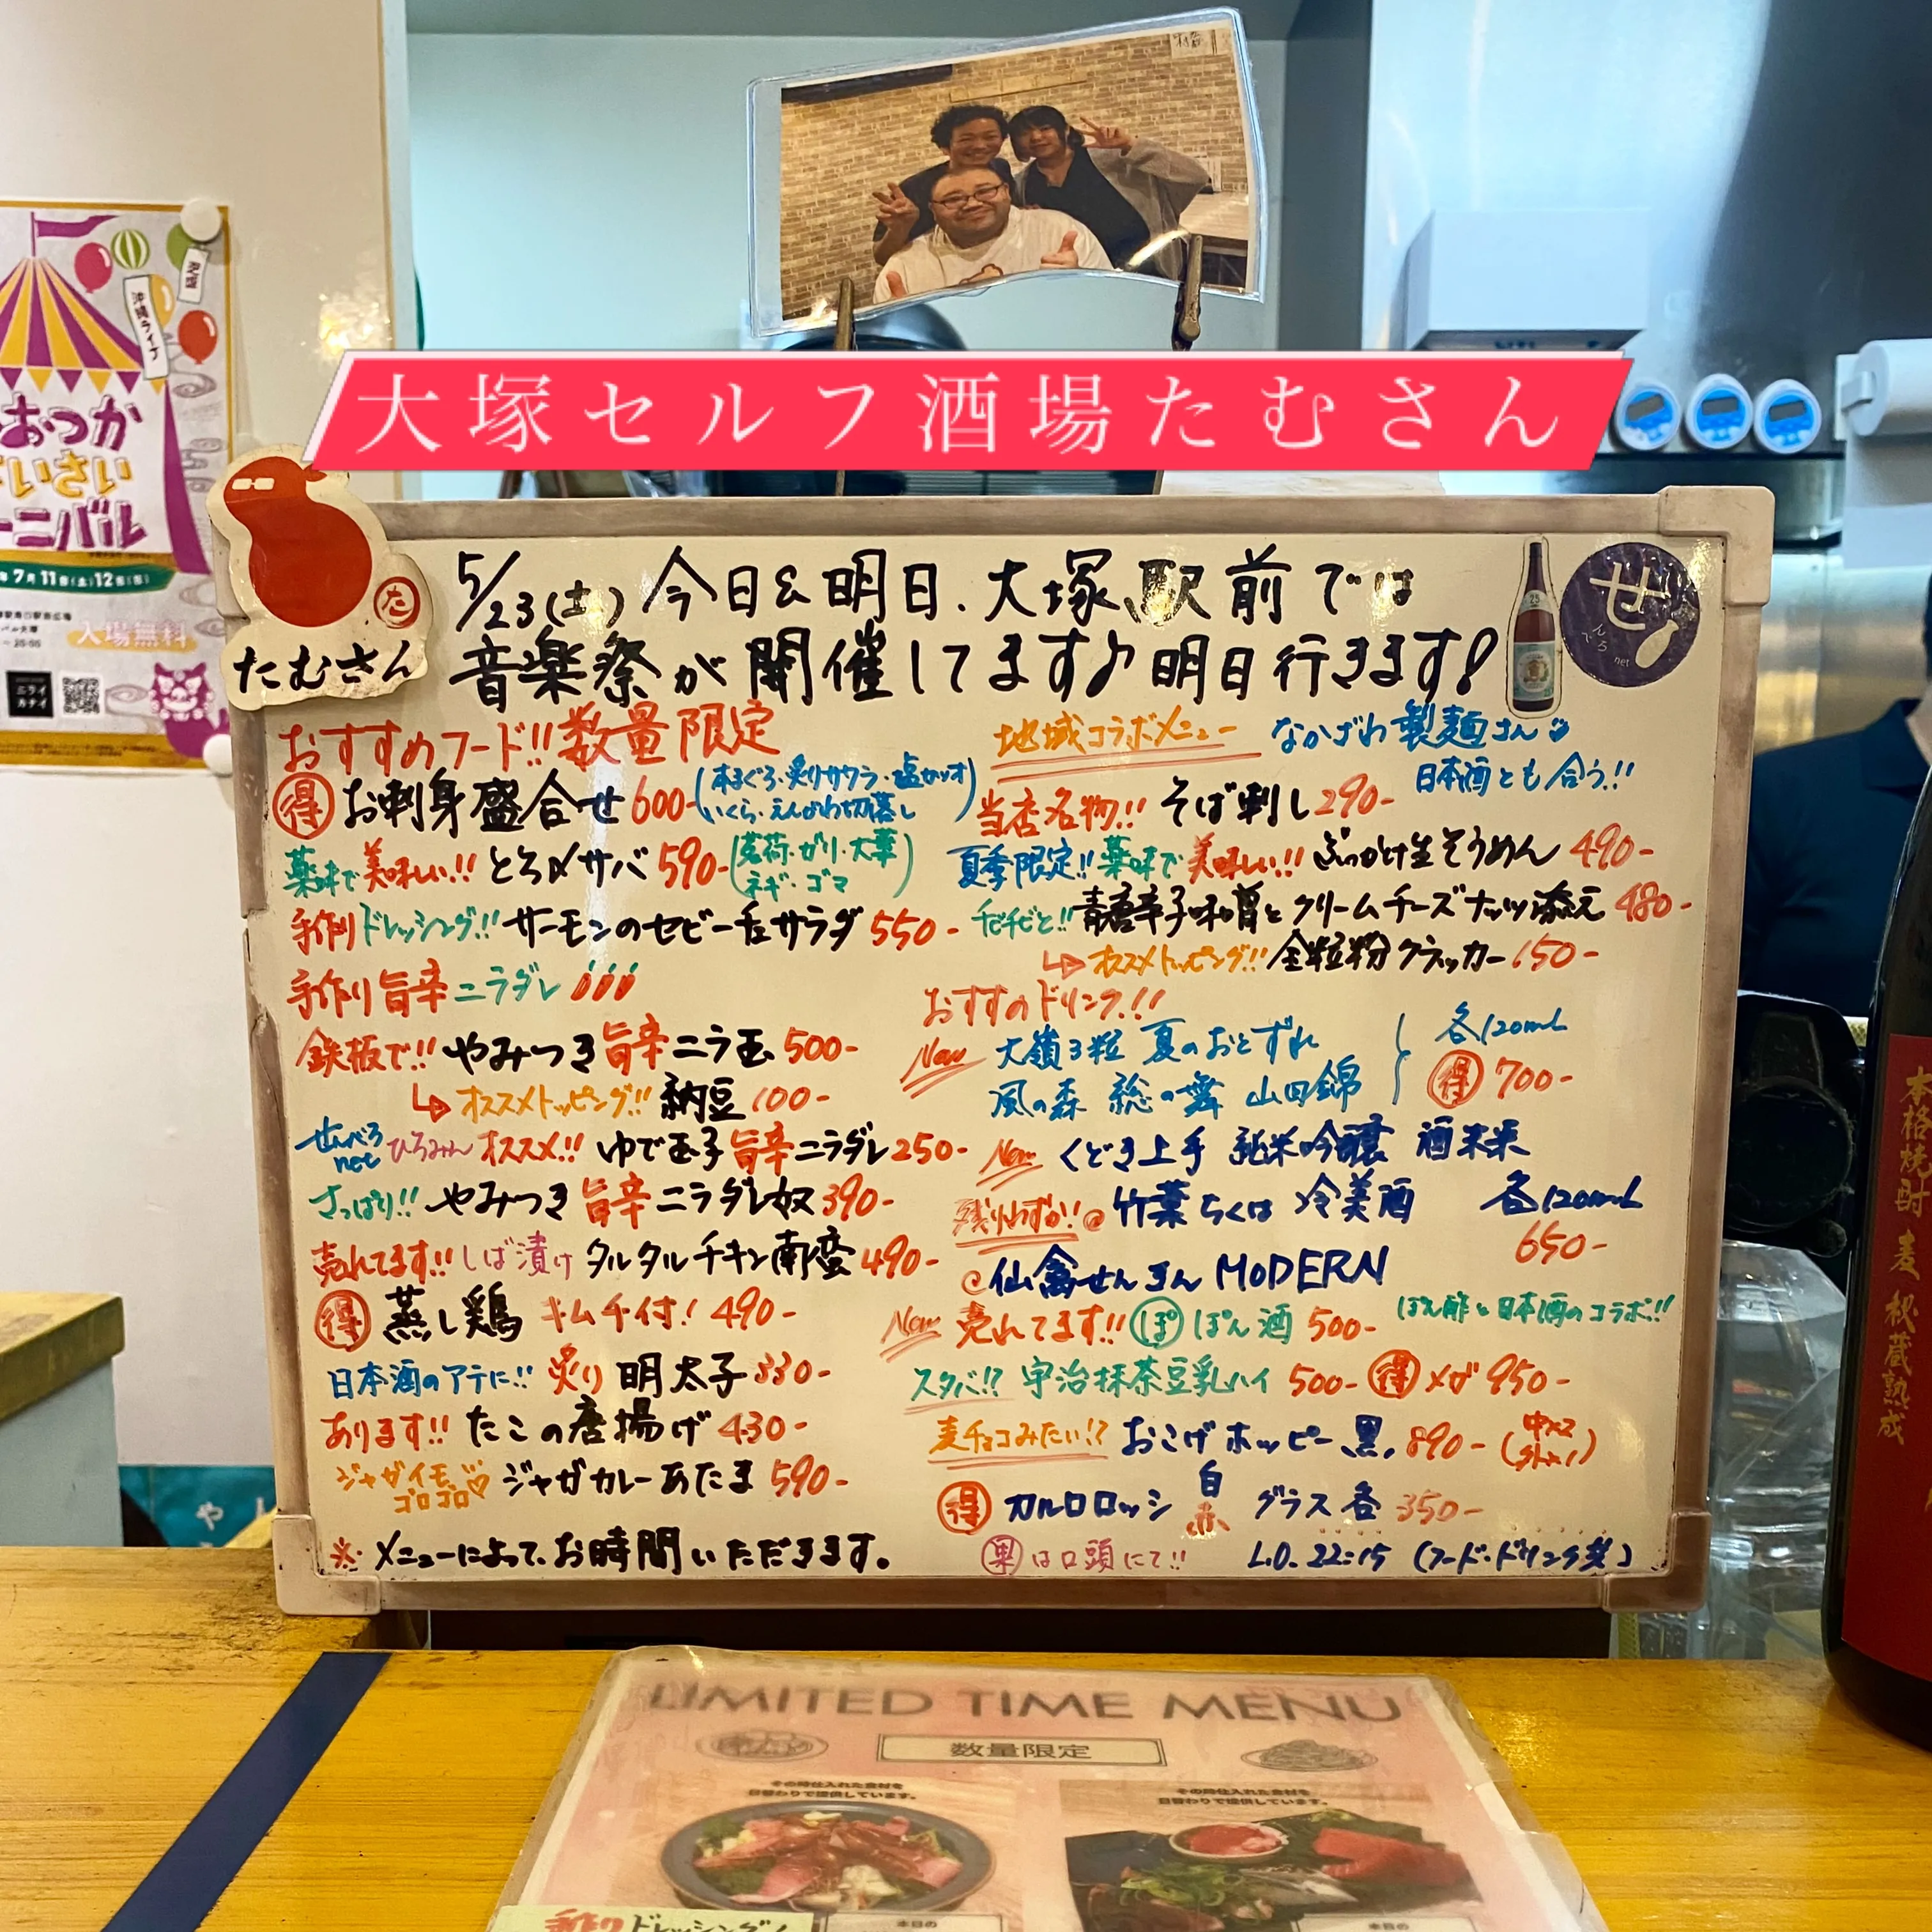 大塚セルフ酒場たむさん
沖縄ライブ
おつか
いさい
ーニバル
7月11日(土)12日(日)
入場無料
ニライ
カナイ
たむさん
た
せ
んべろ
net
5/23(土)今日&明日、大塚駅前では
音楽祭が開催してます♪明日行きます!
おすすめフード!!数量限定
得 お刺身盛合せ 600-(本まぐろ・炙りサワラ・塩カツオ
いくら・えんがわ切落し)
薬味で美味しい!! とろ〆サバ 590-(茗荷・ガリ・大葉
ネギ・ゴマ)
手作りドレッシング!! サーモンのセビーチェサラダ 550-
手作り旨辛ニラダレ
鉄板で!! やみつき旨辛ニラ玉 500-
オススメトッピング!! 納豆 100-
せんべろnet ひろみん オススメ!! ゆで玉子旨辛ニラダレ 250-
さっぱり!! やみつき旨辛ニラダレ奴 390-
売れてます!! しば漬け タルタルチキン南蛮 490-
得 蒸し鶏 キムチ付! 490-
日本酒のアテに!! 炙り明太子 330-
あります!! たこの唐揚げ 430-
ジャガイモ
ゴロゴロ♡ ジャガカレーあたま 590-
※メニューによって、お時間いただきます。
地域コラボメニュー なかざわ製麺さん
日本酒とも合う!!
当店名物!! そば刺し 290-
夏季限定!! 薬味で美味しい!! ぶっかけ生そうめん 490-
チビチビと!! 青唐辛子味噌とクリームチーズナッツ添え 480-
オススメトッピング!! 全粒粉クラッカー 150-
おすすめドリンク!!
New 大嶺3粒 夏のおとずれ
風の森 総の舞 山田錦
各120mL
得 700-
New くどき上手 純米吟醸 酒未来
残りわずか!! 竹葉 ちくは 冷美酒
仙禽せんきん MODERN
各120mL
650-
New 売れてます!! ぽ ぽん酒 500- ぽん酢と日本酒のコラボ!!
スタバ!? 宇治抹茶豆乳ハイ 500- 得 メガ 950-
麦チョコみたい!? おこげホッピー黒 890-(中×2 外×1)
得 カルロロッシ 白 赤 グラス各 350-
果は口頭にて!! L.O. 22:15 (フード・ドリンク共)
本格焼酎 麦 秋蔵熟成
LIMITED TIME MENU
数量限定
その時仕入れた食材を
日替わりで提供しています。
その時仕入れた食材を
日替わりで提供しています。
手作りドレッシング!
本日の
本日の